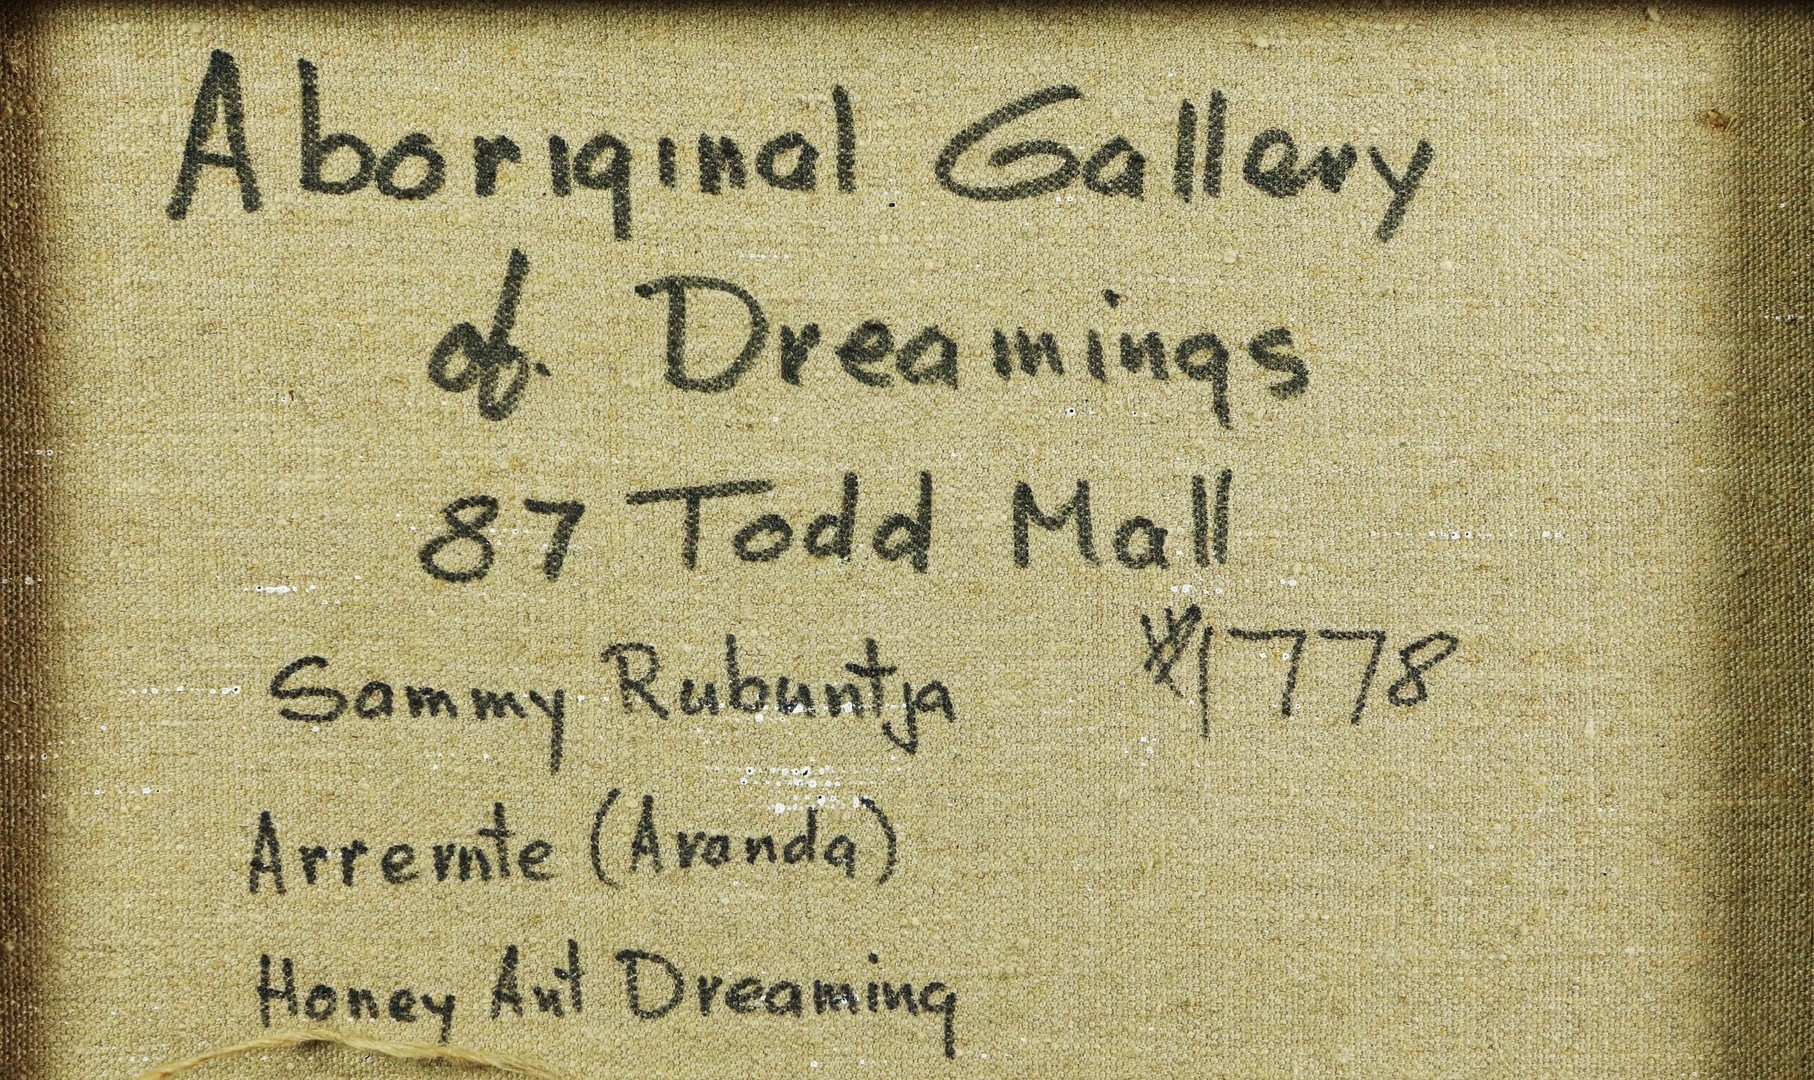 Aboriginal Gallery
of Dreamings
87 Todd Mall
Sammy Rubuntja #1778
Arrernte (Aranda)
Honey Ant Dreaming